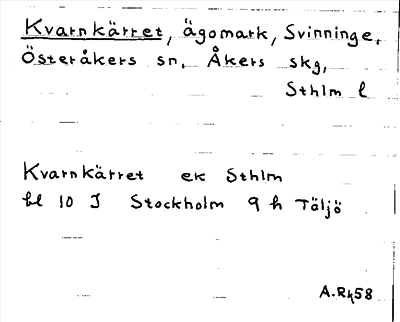 Kvarnkärret, ägomark, Svinninge,
Österåkers sn, Åkers skg,
Sthlm l
Kvarnkärret ek Sthlm
bl 10 I Stockholm 9 h Täljö